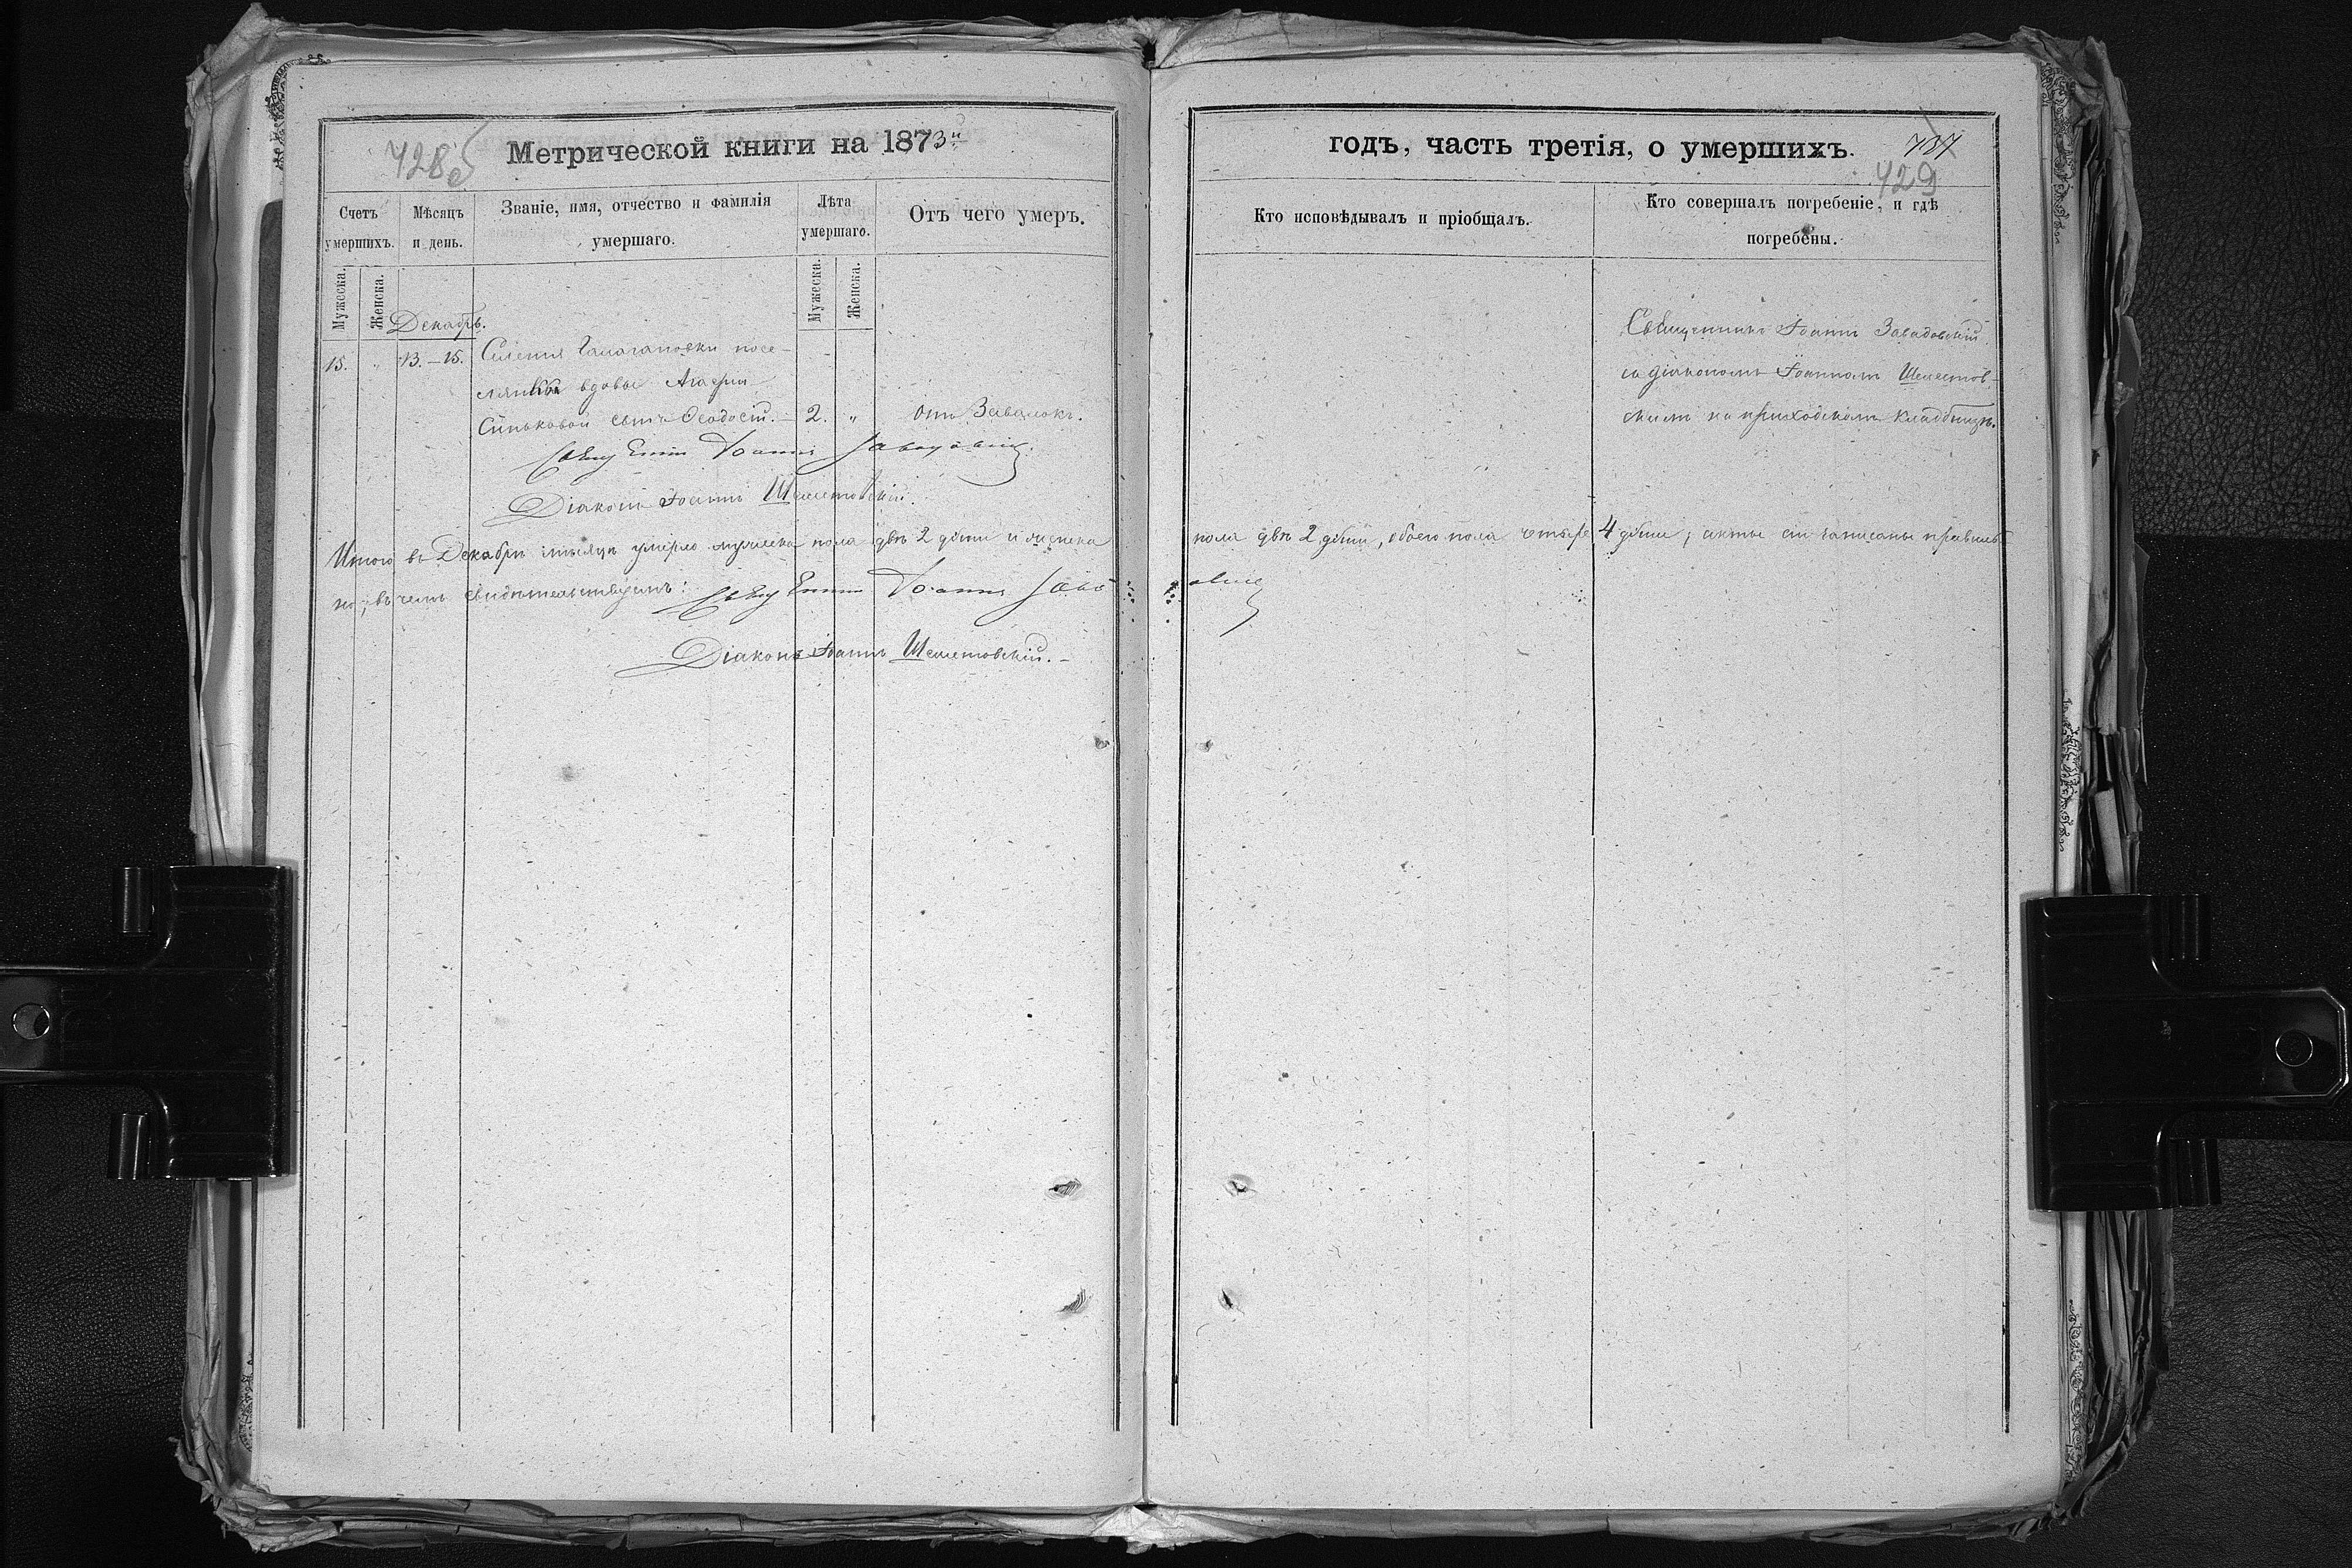 428 об
Метрической книги на 1873й
годъ, часть третія, о умершихъ.
737
429
Счетъ умершихъ.
Мѣсяцъ и день.
Званіе, имя, отчество и фамилія умершаго.
Лѣта умершаго.
Отъ чего умеръ.
Кто исповѣдывалъ и пріобщалъ.
Кто совершалъ погребеніе, и гдѣ погребены.
Мужеска.
Женска.
Мужеска.
Женска.
Декабрь.
15. „ 13.–15. Селенія посе-
лянки вдовы Агафіи
Синьковой сынъ Ѳеодосій. – 2. „ отъ Завалокъ.
Священникъ Іоаннъ Завадовскій
съ діакономъ Іоанномъ Шелестов-
скимъ на приходскомъ кладбищѣ.
Священникъ Іоаннъ Завадовскій
Діаконъ Іоаннъ Шелестовскій.
Итого въ Декабрѣ мѣсяцѣ умерло мужеска пола двѣ 2 души и женска пола двѣ 2 души, обоего пола четыре 4 души; акты сіи записаны правиль-
но, въ чемъ свидѣтельствуемъ: Священникъ Іоаннъ Завадовскій
Діаконъ Іоаннъ Шелестовскій. –